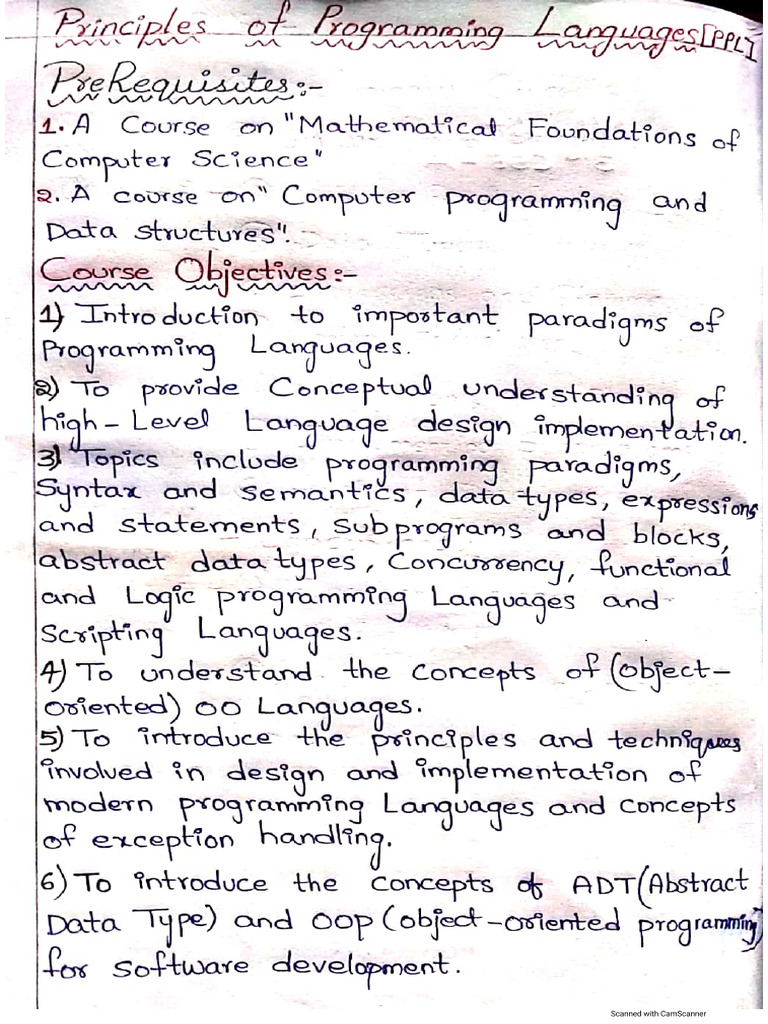 Principles of Programming Languages[PPL]
PreRequisites:-
1. A Course on "Mathematical Foundations of
Computer Science"
2. A course on" Computer programming and
Data structures".
Course Objectives:-
1) Introduction to important paradigms of
Programming Languages.
2) To provide Conceptual understanding of
high-Level Language design implementation.
3) Topics include programming paradigms,
Syntax and semantics, data types, expressions
and statements, subprograms and blocks,
abstract data types, Concurrency, functional
and Logic programming Languages and
Scripting Languages.
4) To understand the concepts of (object-
oriented) OO Languages.
5) To introduce the principles and techniques
involved in design and implementation of
modern programming Languages and concepts
of exception handling.
6) To introduce the concepts of ADT(Abstract
Data Type) and OOP (object-oriented programming)
for software development.
Scanned with CamScanner